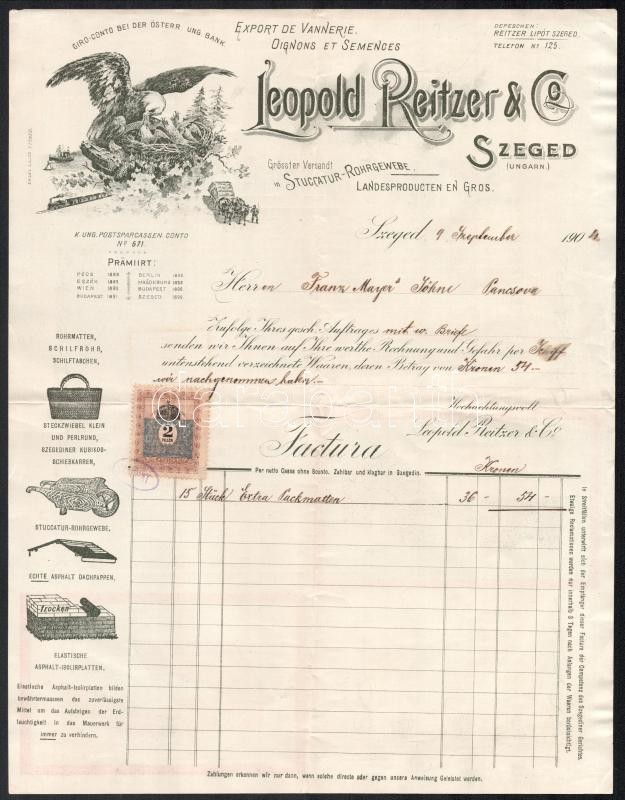 GIRO-CONTO BEI DER ÖSTERR. UNG. BANK
EXPORT DE VANNERIE.
OIGNONS ET SEMENCES
DEPESCHEN:
REITZER LIPÓT SZEGED.
TELEFON Nº 125.
Leopold Reitzer & Co
SZEGED
(UNGARN.)
Grösster Versandt
in STUCCATUR-ROHRGEWEBE.
LANDESPRODUCTEN EN GROS.
K. UNG. POSTSPARCASSEN-CONTO
Nº 671.
PRÄMIIRT:
PÉCS 1888 BERLIN
ESZÉK 1889 MAGDEBURG
WIEN 1890 BUDAPEST 1896
BUDAPEST 1891 SZEGED 1899
Szeged, 9 Szeptember 190
Herren Franz Mayer's Söhne Pancsova
Zufolge Ihres gesch. Auftrages mit w. Brief
senden wir Ihnen auf Ihre werthe Rechnung und Gefahr per Schiff
untenstehend verzeichnete Waaren, deren Betrag von Kronen 54.-
wir nachgenommen haben.-
Hochachtungsvoll
Leopold Reitzer & Co.
Factura
2
FILLÉR
darabanth
Per netto Cassa ohne Sconto. Zahlbar und klagbar in Szegedin.
Kronen
15 Stück Extra Packmatten 36 - 54 -
ROHRMATTEN,
SCHILFROHR,
SCHILFTASCHEN,
STECKZWIEBEL KLEIN
UND PERLRUND,
SZEGEDINER KUBIKOS-
SCHIEBKARREN,
STUCCATUR-ROHRGEWEBE,
ECHTE ASPHALT DACHPAPPEN,
Trocken
ELASTISCHE
ASPHALT-ISOLIRPLATTEN.
Elastische Asphalt-Isolirplatten bilden
bewährtermassen das zuverlässigste
Mittel um das Aufsteigen der Erd-
feuchtigkeit in das Mauerwerk für
immer zu verhindern.
In Streitfällen unterwirft sich der Empfänger dieser Factura der Competenz des Szegediner Gerichtes.
Etwaige Reclamationen werden nur innerhalb 8 Tagen nach Anlangen der Waaren berücksichtigt.
Zahlungen erkennen wir nur dann, wenn solche directe oder gegen unsere Anweisung Geleistet werden.